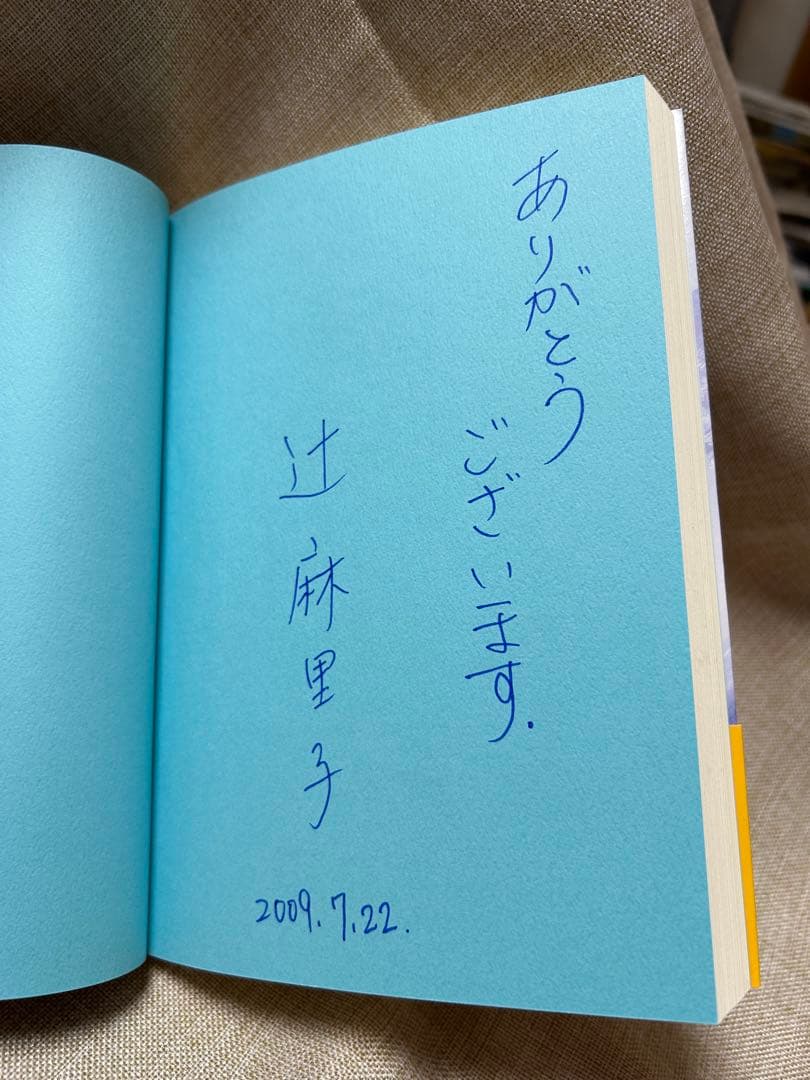 ありがとう
ございます.
辻 麻里子
2009.7.22.